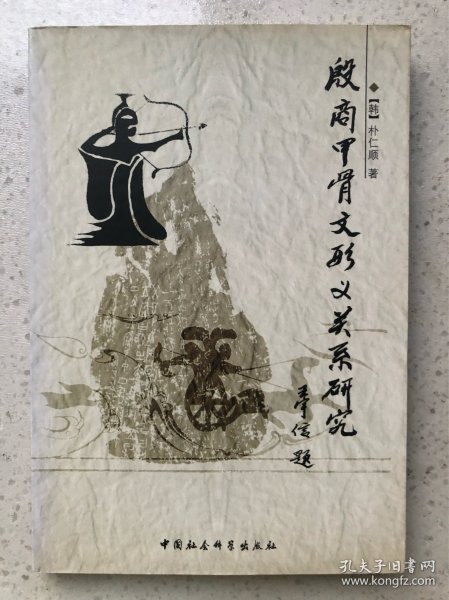 殷商甲骨文形义关系研究
【韩】朴仁顺 著
中国社会科学出版社
孔夫子旧书网
www.kongfz.com